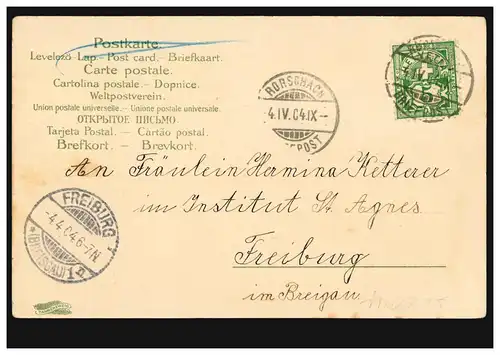 Postkarte.
Levelező Lap. - Post card. - Briefkaart.
Carte postale.
Cartolina postale. - Dopnice.
Weltpostverein.
Union postale universelle. - Unione postale universale.
ОТКРЫТОЕ ПИСЬМО
Tarjeta Postal. - Cartão postal.
Brefkort. - Brevkort.
RORSCHACH
4.IV.04.IX-
An Fräulein Hermina Ketterer
im Institut St. Agnes
Freiburg
im Breigau
FREIBURG
-4.4.04.6-7N
*(BREISGAU)1